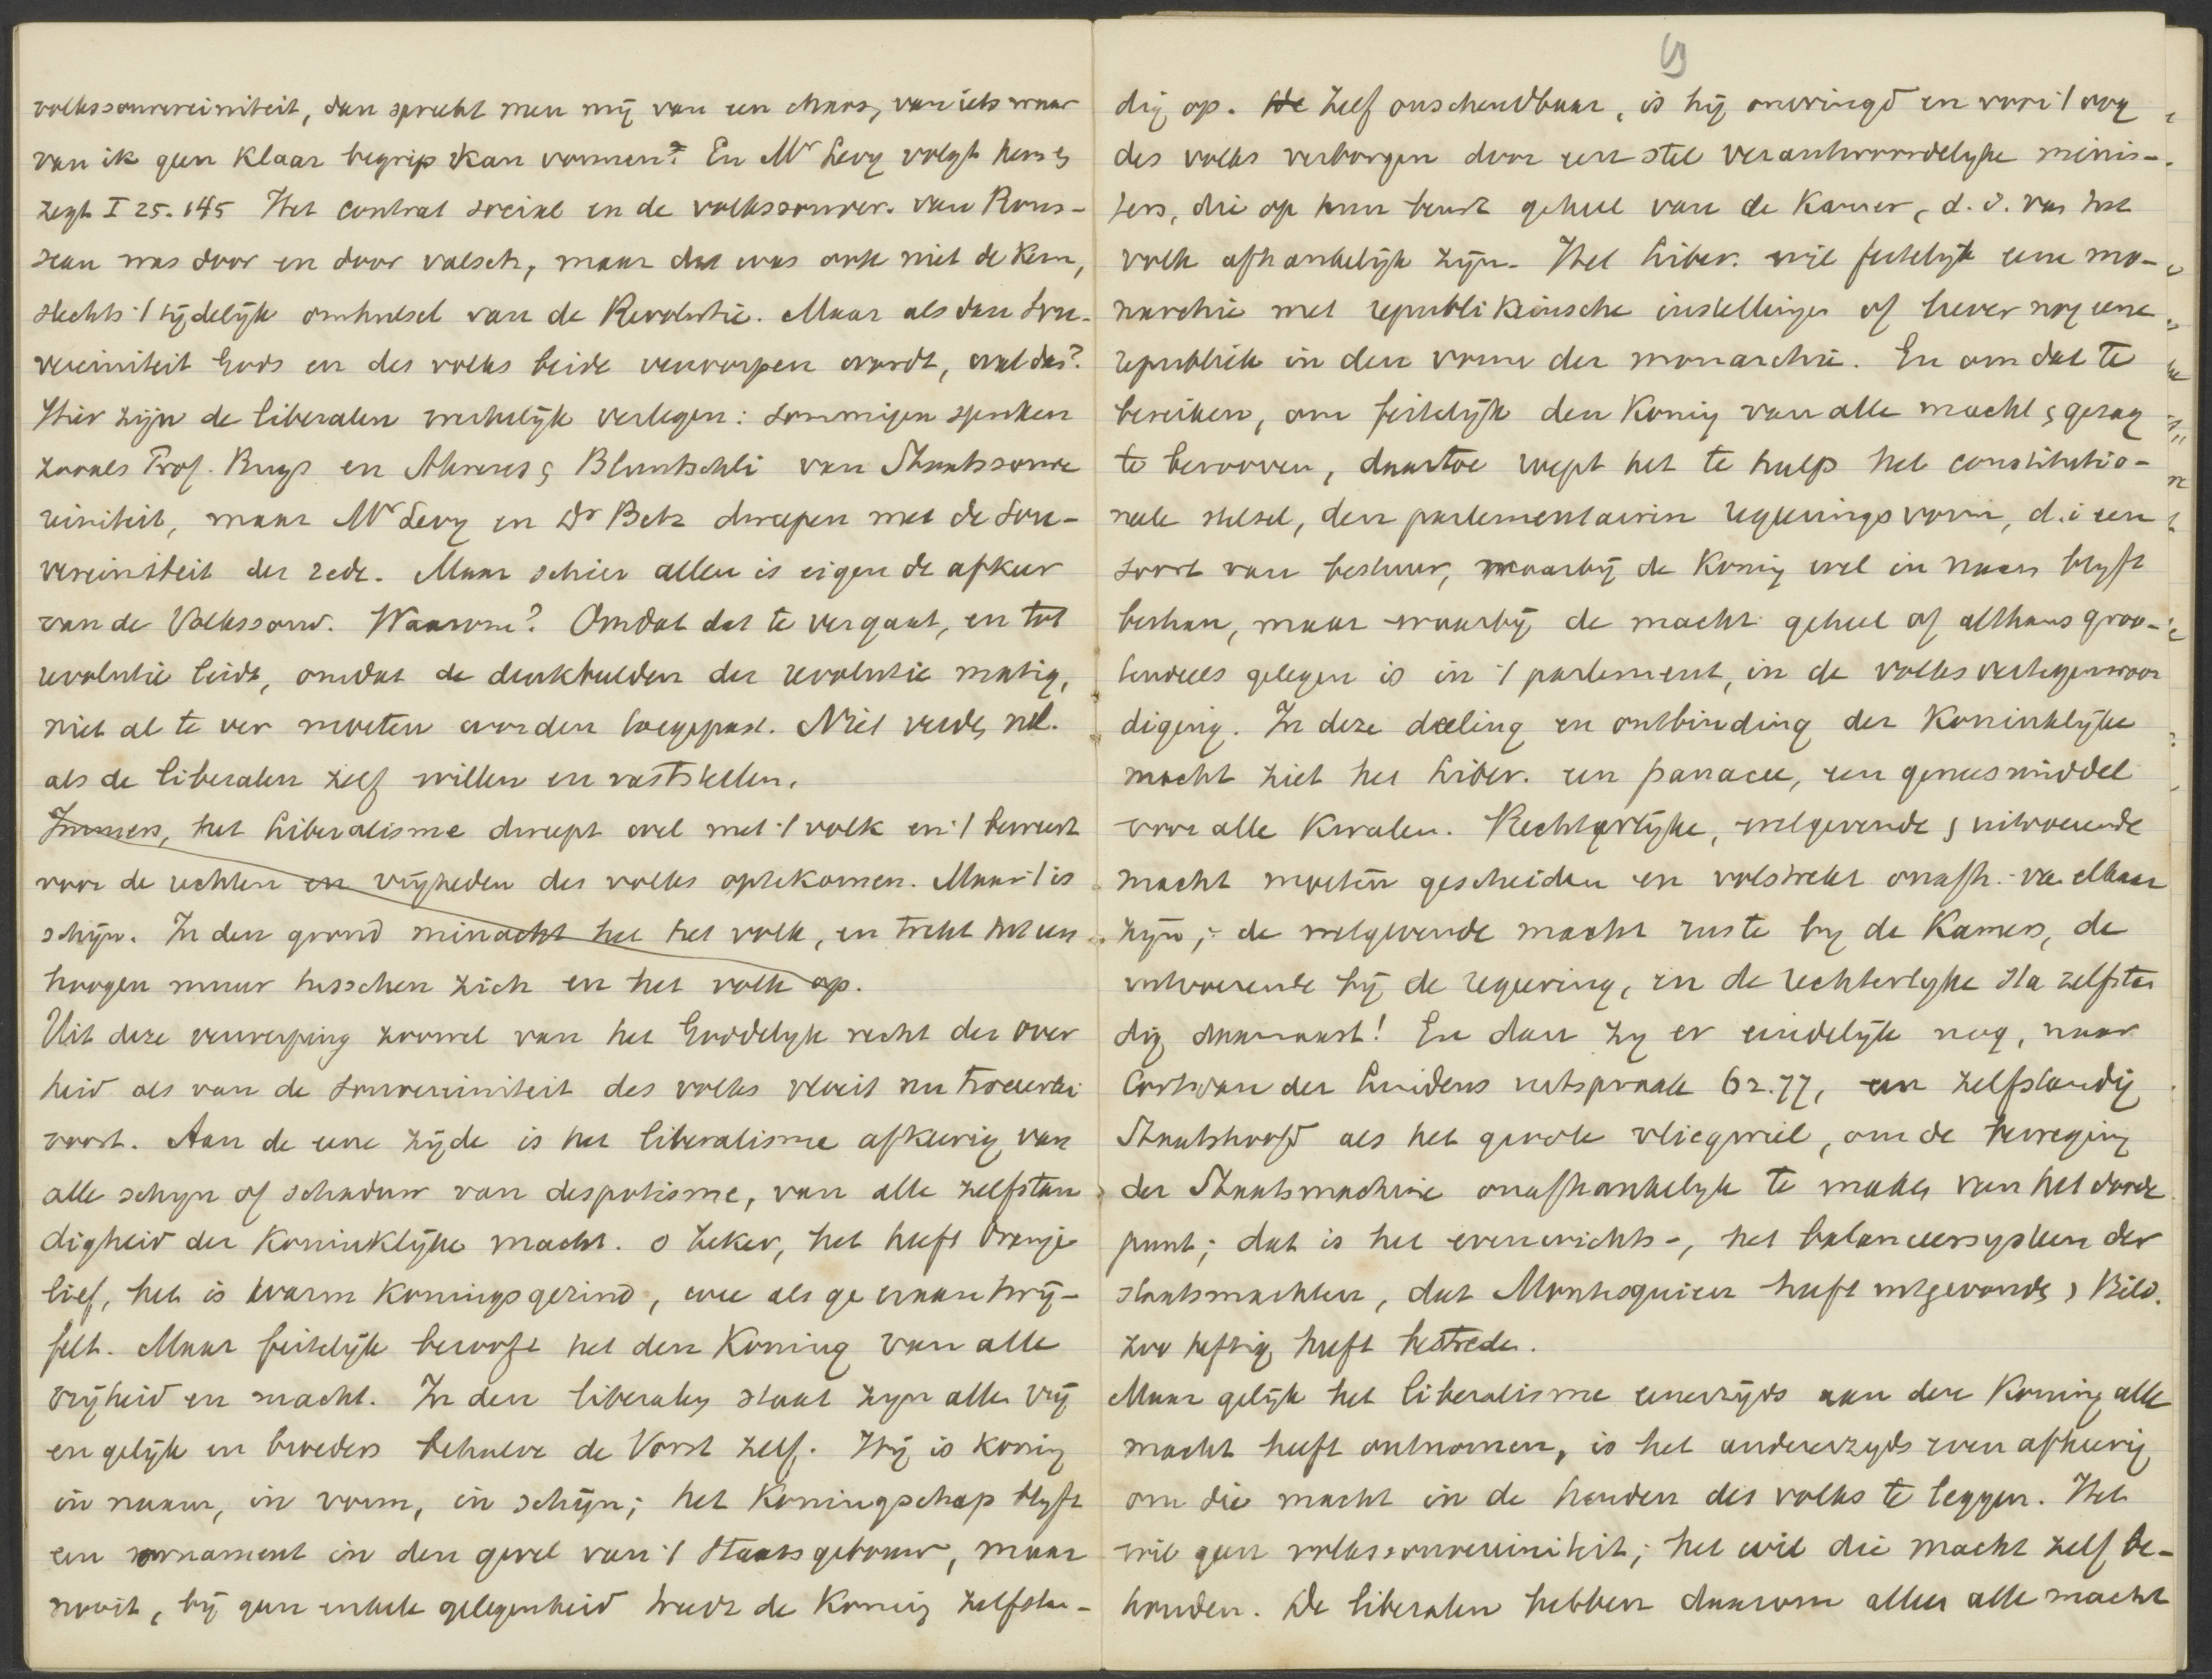 volkssouvereiniteit, dan spreekt men mij van een chaos, van iets waar
van ik geen klaar begrip kan vormen? En Mr Levy volgt hem &
zegt I 25. 145 Het contrat social en de volkssouver. van Rous-
seau was door en door valsch, maar dat was ook niet de kern,
slechts 't tijdelijk omhulsel van de Revolutie. Maar als dan Sou-
vereiniteit Gods en des volks beide verworpen wordt, wat dan?
Hier zijn de liberalen werkelijk verlegen: sommigen spreken
zooals Prof. Buys en Ahrens & Bluntschli van Staatssouve
reiniteit, maar Mr Levy en Dr Betz dweepen met de sou-
vereiniteit der rede. Maar schier allen is eigen de afkeer
van de Volkssouv. Waarom? Omdat dat te ver gaat, en tot
revolutie leidt, omdat de denkbeelden der revolutie matig,
niet al te ver moeten worden toegepast. Niet verder nl.
als de liberalen zelf willen en vaststellen.
Immers, het liberalisme dweept wel met 't volk en 't beweert
voor de rechten en vrijheden des volks optekomen. Maar 't is
schijn. In den grond minacht het het volk, en trekt het een
hoogen muur tusschen zich en het volk op.
Uit deze verwerping zoowel van het Goddelijk recht der over
heid als van de souvereiniteit des volks vloeit nu tweeerlei
voort. Aan de eene zijde is het liberalisme afkeerig van
alle schijn of schaduw van despotisme, van alle zelfstan
digheid der Koninklijke macht. o zeker, het heeft Oranje
lief, het is warm Koningsgezind, wee als ge eraan twij-
felt. Maar feitelijk berooft het den Koning van alle
vrijheid en macht. In den liberalen staat zijn allen vrij
en gelijk en broeders behalve de Vorst zelf. Hij is koning
in naam, in vorm, in schijn; het Koningschap blijft
een ornament in den gevel van 't Staatsgebouw, maar
nooit, bij geen enkele gelegenheid treedt de Koning zelfstan-
dig op. De Zelf onschendbaar, is hij omringd en voor 't oog
des volks verborgen door een stel verantwoordelijke minis-
ters, die op hun beurt geheel van de Kamer, d.i. van het
volk afhankelijk zijn. Het Liber. wil feitelijk eene mo-
narchie met republikeinsche instellingen of liever nog eene
republiek in den vorm der monarchie. En om dat te
bereiken, om feitelijk den Koning van alle macht & gezag
te berooven, daartoe roept het te hulp het constitutio-
neele stelsel, den parlementairen regeeringsvorm, d.i een
soort van bestuur, waarbij de Koning wel in naam blijft
bestaan, maar waarbij de macht geheel of althans groo-
tendeels gelegen is in 't parlement, in de volksvertegenwoor
diging. In deze deeling en ontbinding der Koninklijke
macht ziet het Liber. een panacee, een geneesmiddel
voor alle kwalen. Rechterlijke, wetgevende & uitvoerende
macht moeten gescheiden en volstrekt onafh. van elkaar
zijn; de wetgevende macht ruste bij de Kamers, de
uitvoerende bij de regeering, en de rechterlijke sta zelfstan
dig daarnaast! En dan zij er eindelijk nog, naar
Cort van der Lindens uitspraak 62.77, een zelfstandig
Staatshoofd als het groote vliegwiel, om de beweging
der Staatsmachine onafhankelijk te maken van het doode
punt; dat is het evenwichts-, het balanceersysteem der
staatsmachten, dat Montesquieu heeft uitgevonden & Bild.
zoo heftig heeft bestreden.
Maar gelijk het liberalisme eenerzijds aan den Koning alle
macht heeft ontnomen, is het anderzijds even afkeerig
om die macht in de handen des volks te leggen. Het
wil geen volkssouvereiniteit; het wil die macht zelf be-
houden. De liberalen hebben daarom allen alle macht